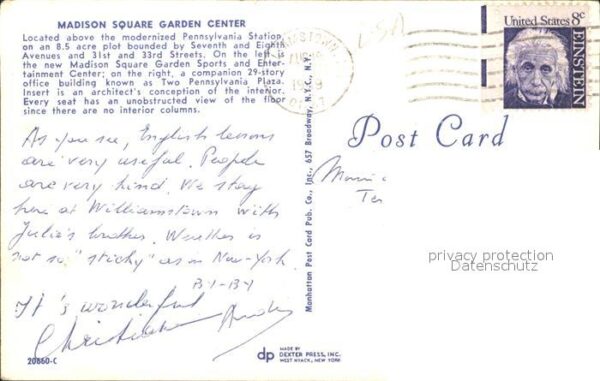 MADISON SQUARE GARDEN CENTER
Located above the modernized Pennsylvania Station
on an 8.5 acre plot bounded by Seventh and Eighth
Avenues and 31st and 33rd Streets. On the left is
the new Madison Square Garden Sports and Enter-
tainment Center; on the right, a companion 29-story
office building known as Two Pennsylvania Plaza.
Insert is an architect's conception of the interior.
Every seat has an unobstructed view of the floor
since there are no interior columns.
As you see, English lessons
are very useful. People
are very kind. We stay
here at Williamstown with
Julia's brother. Weather is
not so "sticky" as in New-York.
BY-BY
It's wonderful
20660-C
Manhattan Post Card Pub. Co., Inc., 657 Broadway, N.Y.C., N.Y.
dp
MADE BY
DEXTER PRESS, INC.
WEST NYACK, NEW YORK
USA
United States 8c
EINSTEIN
Post Card
privacy protection
Datenschutz